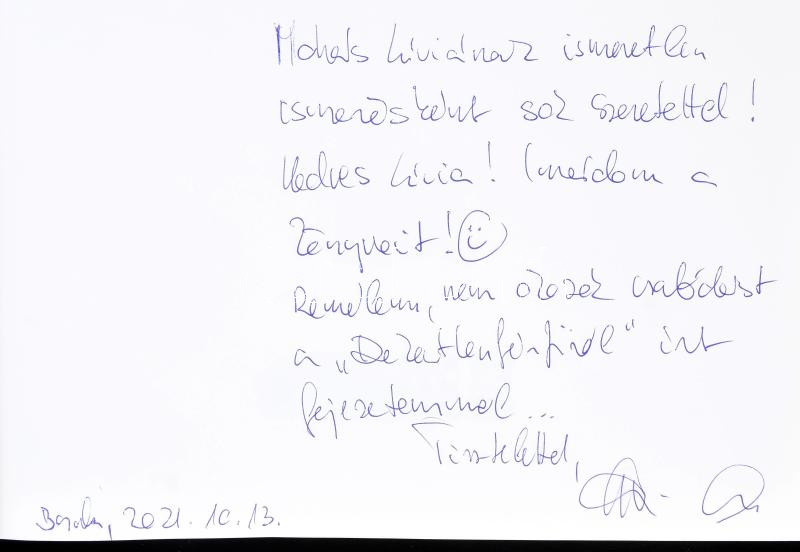 Mohás Líviának ismeretlen
ismerősként sok szeretettel!
Kedves Lívia! Imádom a
könyveit! ☺
Remélem, nem okozok csalódást
a „Dekatlen férfiról" írt
fejezetemmel...
Tisztelettel,
2021. 10. 13.